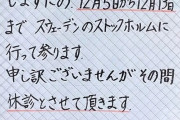 しますたの、12月5日から12月13日
まで スウェーデンのストックホルムに
行って参ります。
申し訳ございませんがその間
休診とさせて頂きます。